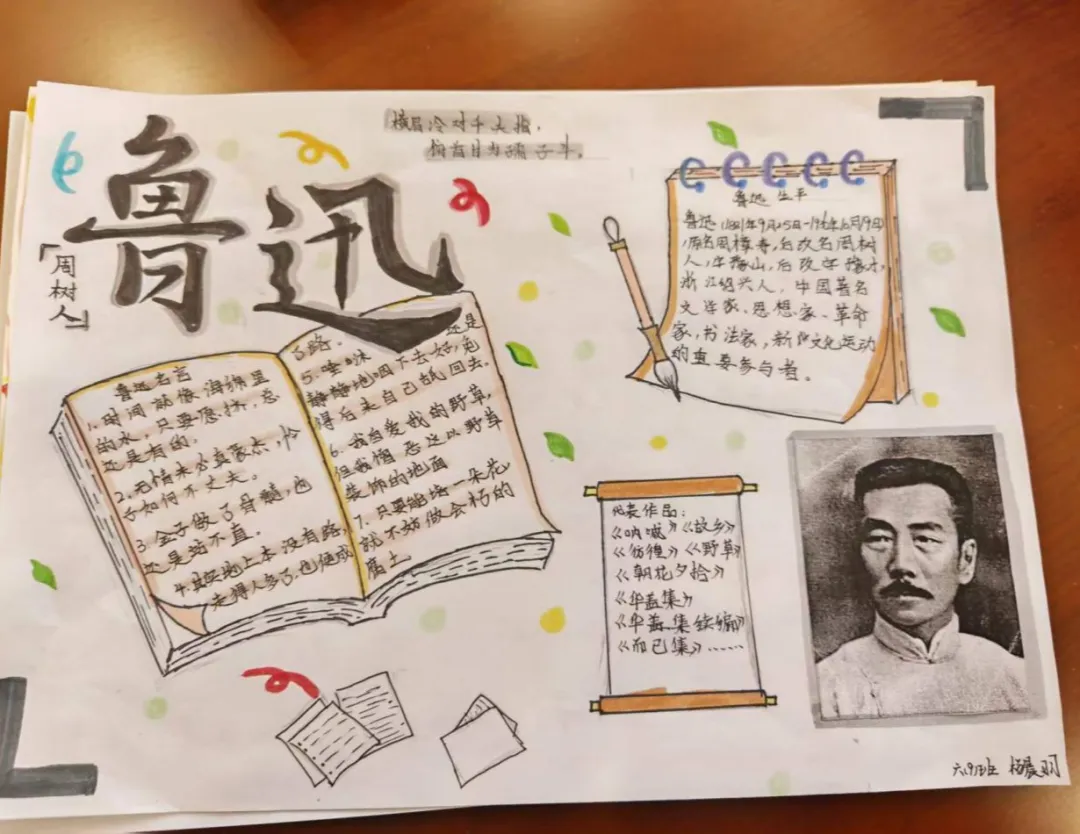 鲁迅
「周树人」
横眉冷对千夫指,
俯首甘为孺子牛。
鲁迅 生平
鲁迅(1881年9月25日-1936年10月19日)
原名周樟寿,后改名周树
人,字豫山,后改字豫才,
浙江绍兴人,中国著名
文学家、思想家、革命
家,书法家,新文化运动
的重要参与者。
鲁迅名言
1.时间就像海绵里
的水,只要愿挤,总
还是有的。
2.无情未必真豪杰,怜
子如何不丈夫。
3.金子做了骨髓,也
还是站不直。
4.其实地上本没有路,
走得人多了,也便成
了路。
5. 还是
静静地咽下去好,免
得后来自己舐回去。
6.我自爱我的野草,
但我憎恶这以野草
装饰的地面
7.只要能培一朵花,
就不妨做会朽的
腐土
代表作品:
《呐喊》《故乡》
《彷徨》《野草》
《朝花夕拾》
《华盖集》
《华盖集续编》
《而已集》……
六.9班 杨晨羽